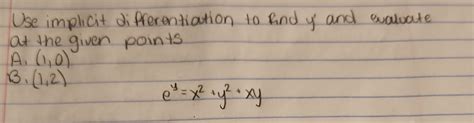 Use implicit differentiation to find y' and evaluate
at the given points
A. (1,0)
B. (1,2)
e^y = x² + y² + xy